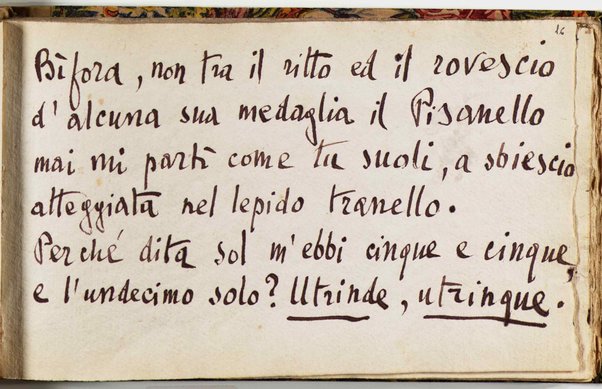 26
Bìfora, non tra il ritto ed il rovescio
d'alcuna sua medaglia il Pisanello
mai mi partì come tu suoli, a sbiescio
atteggiata nel lepido tranello.
Perché dita sol m'ebbi cinque e cinque,
e l'undecimo solo? Utrinde, utrinque.